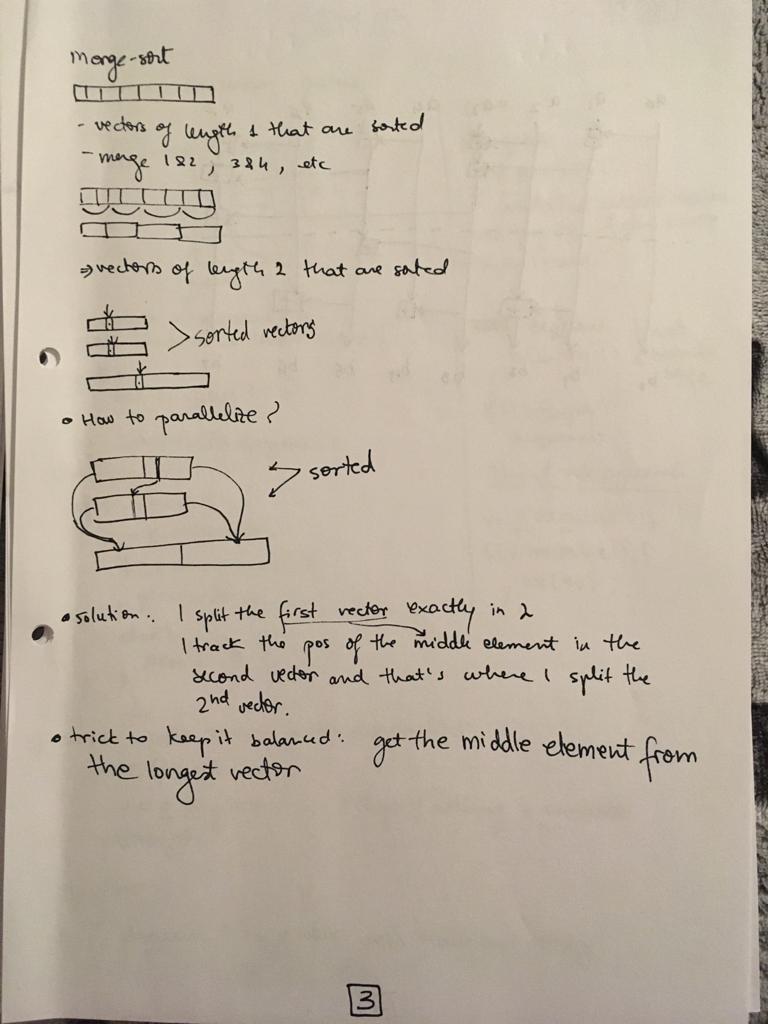 Merge-sort
- vectors of length 1 that are sorted
- merge 1&2, 3&4, etc
⇒ vectors of length 2 that are sorted
> sorted vectors
• How to parallelize?
sorted
• solution: I split the first vector exactly in 2
I track the pos of the middle element in the
second vector and that's where I split the
2nd vector.
• trick to keep it balanced: get the middle element from
the longest vector
3